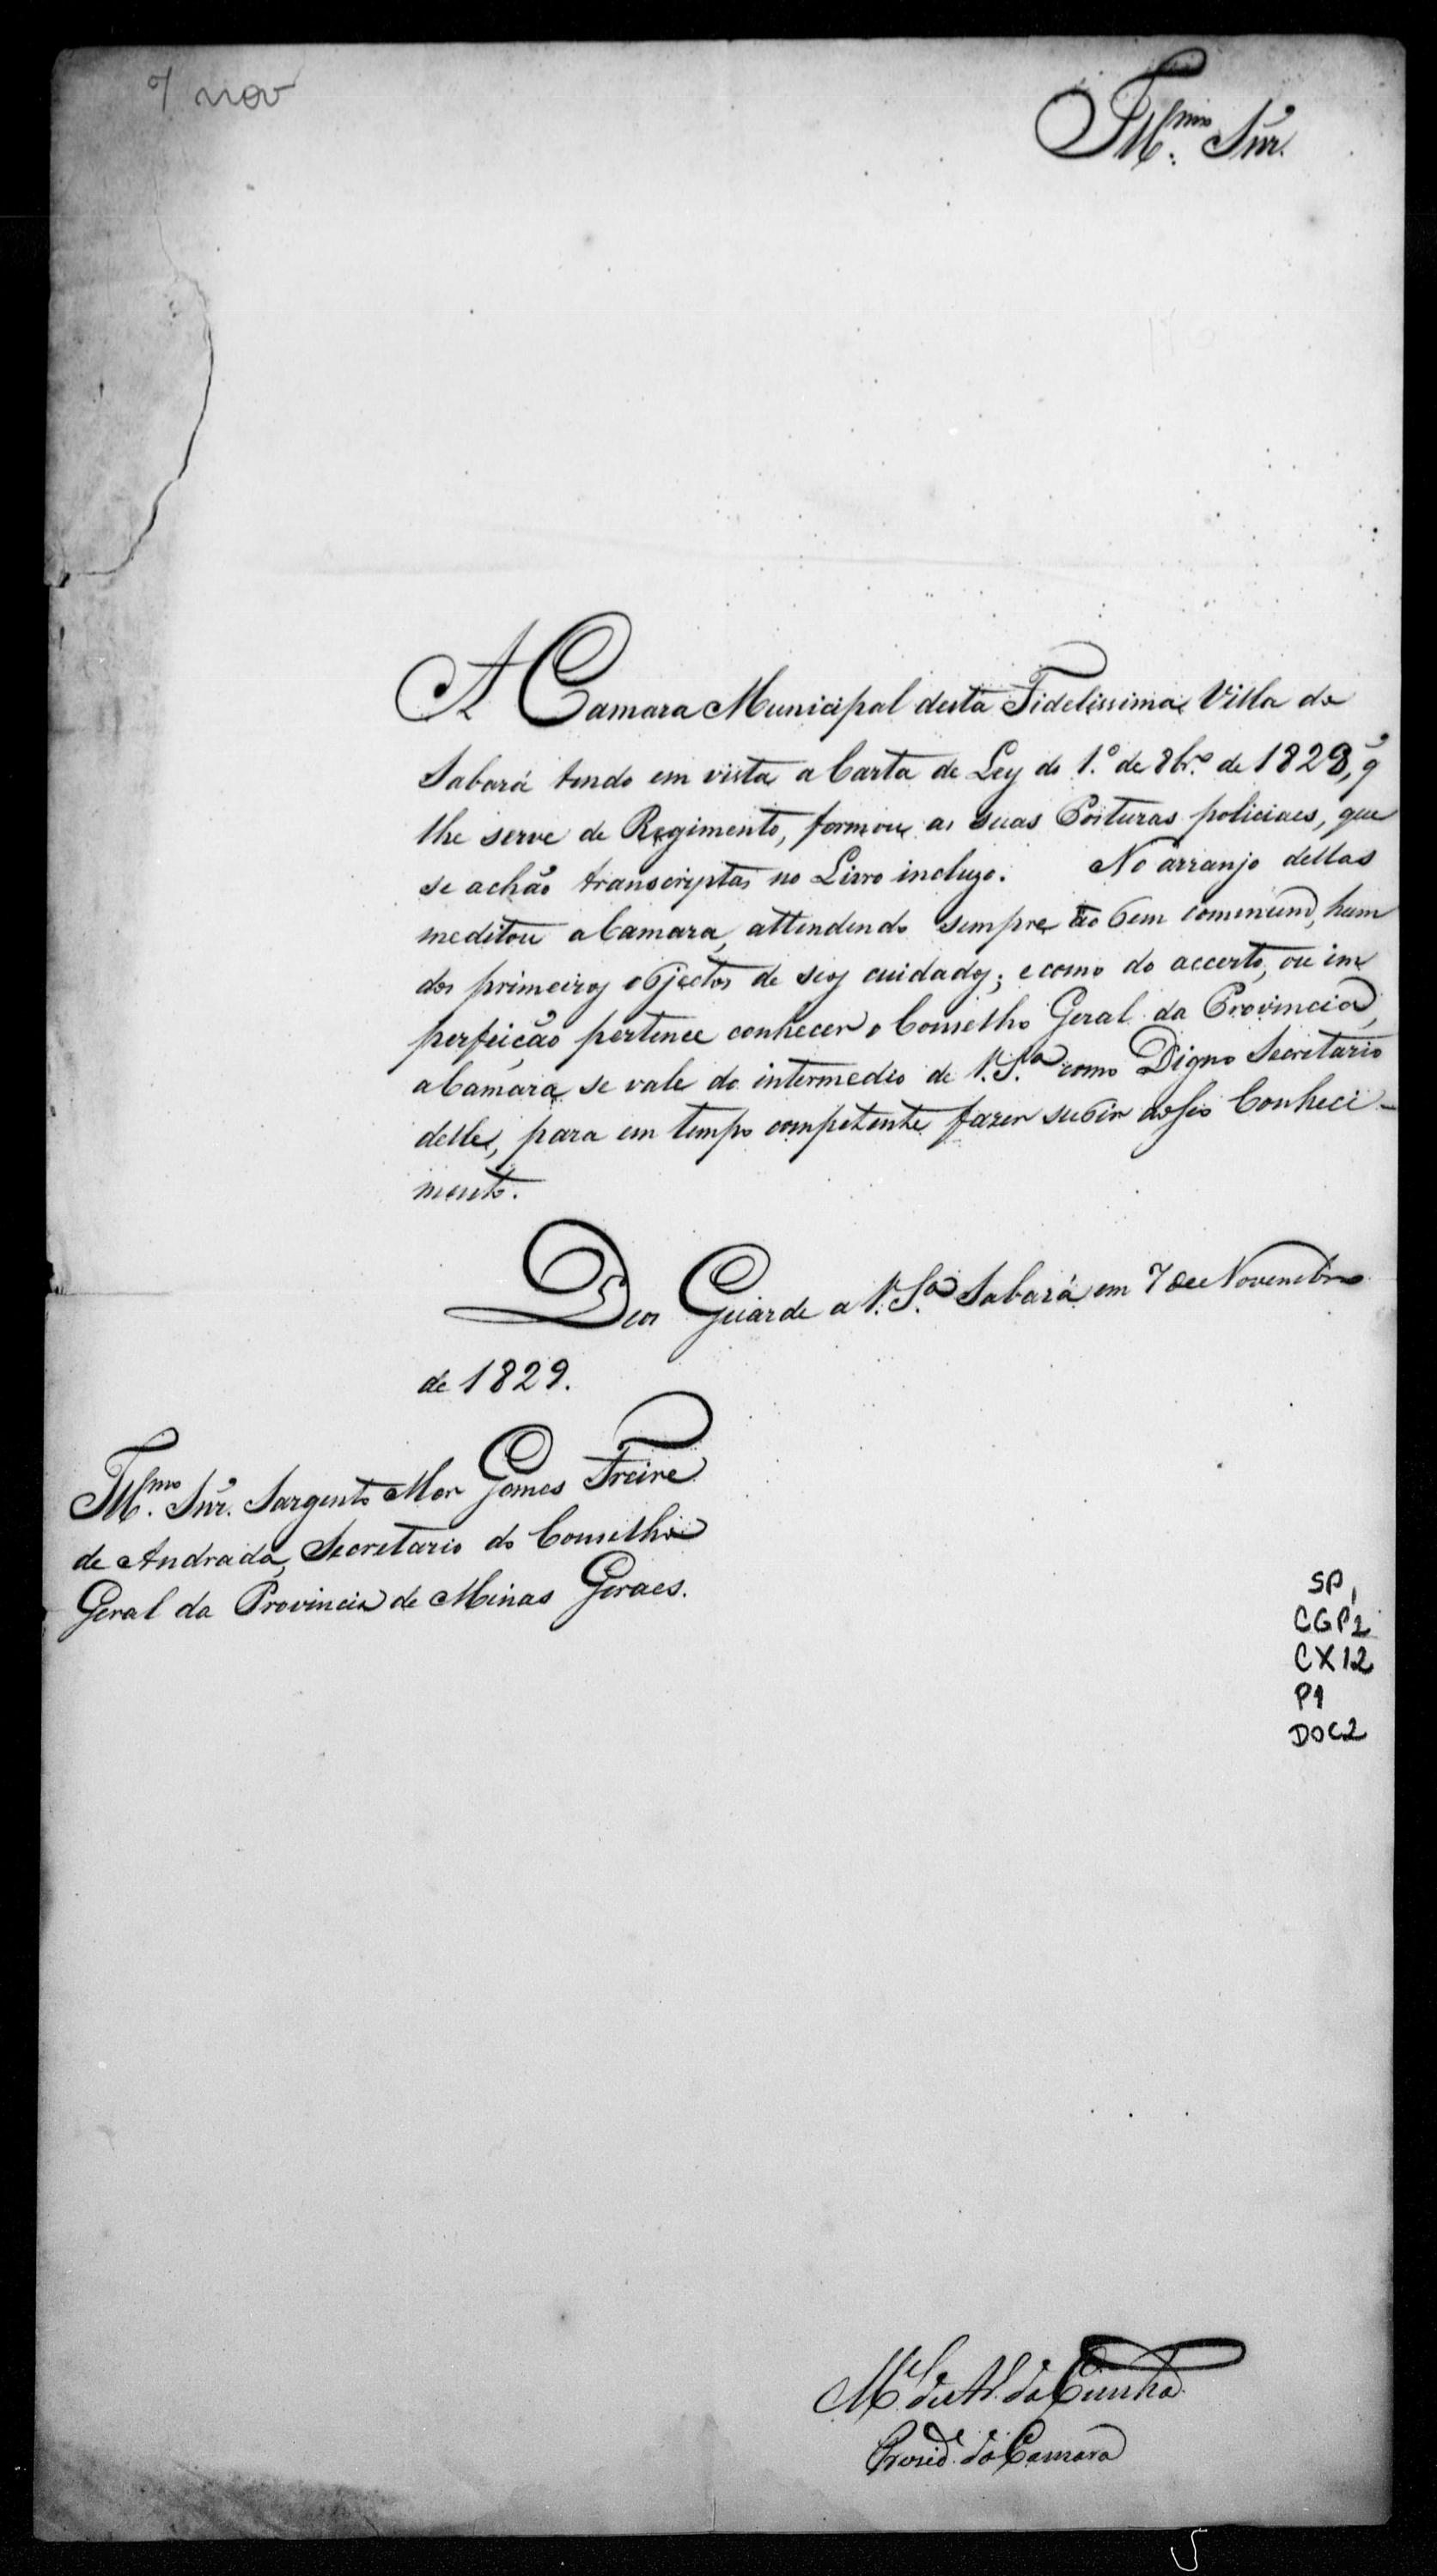 7 nov
Ill.mo Snr.
A Camara Municipal desta Fidelissima Villa do
Sabará tendo em vista a Carta de Ley do 1.º de 8br.º de 1828, q̃
lhe serve de Regimento, formou as suas Posturas policiaes, que
se achão transcriptas no Livro incluzo. No arranjo dellas
meditou a Camara, attendendo sempre ao bem commum, hum
dos primeiros objectos de seos cuidados; e como do accerto, ou im
perfeição pertence conhecer o Conselho Geral da Provincia,
a Camara se vale do intermedio de V. S.a como Digno Secretario
delle, para em tempo competente fazer subir ao seo Conheci-
mento.
Deos Guarde a V. S.a Sabará em 7 de Novembro
de 1829.
Ill.mo Snr. Sargento Mor Gomes Freire
de Andrada, Secretario do Conselho
Geral da Provincia de Minas Geraes.
SP
CGP1
CX12
P1
DOC2
M.el da Cunha
Presid.e da Camara
5